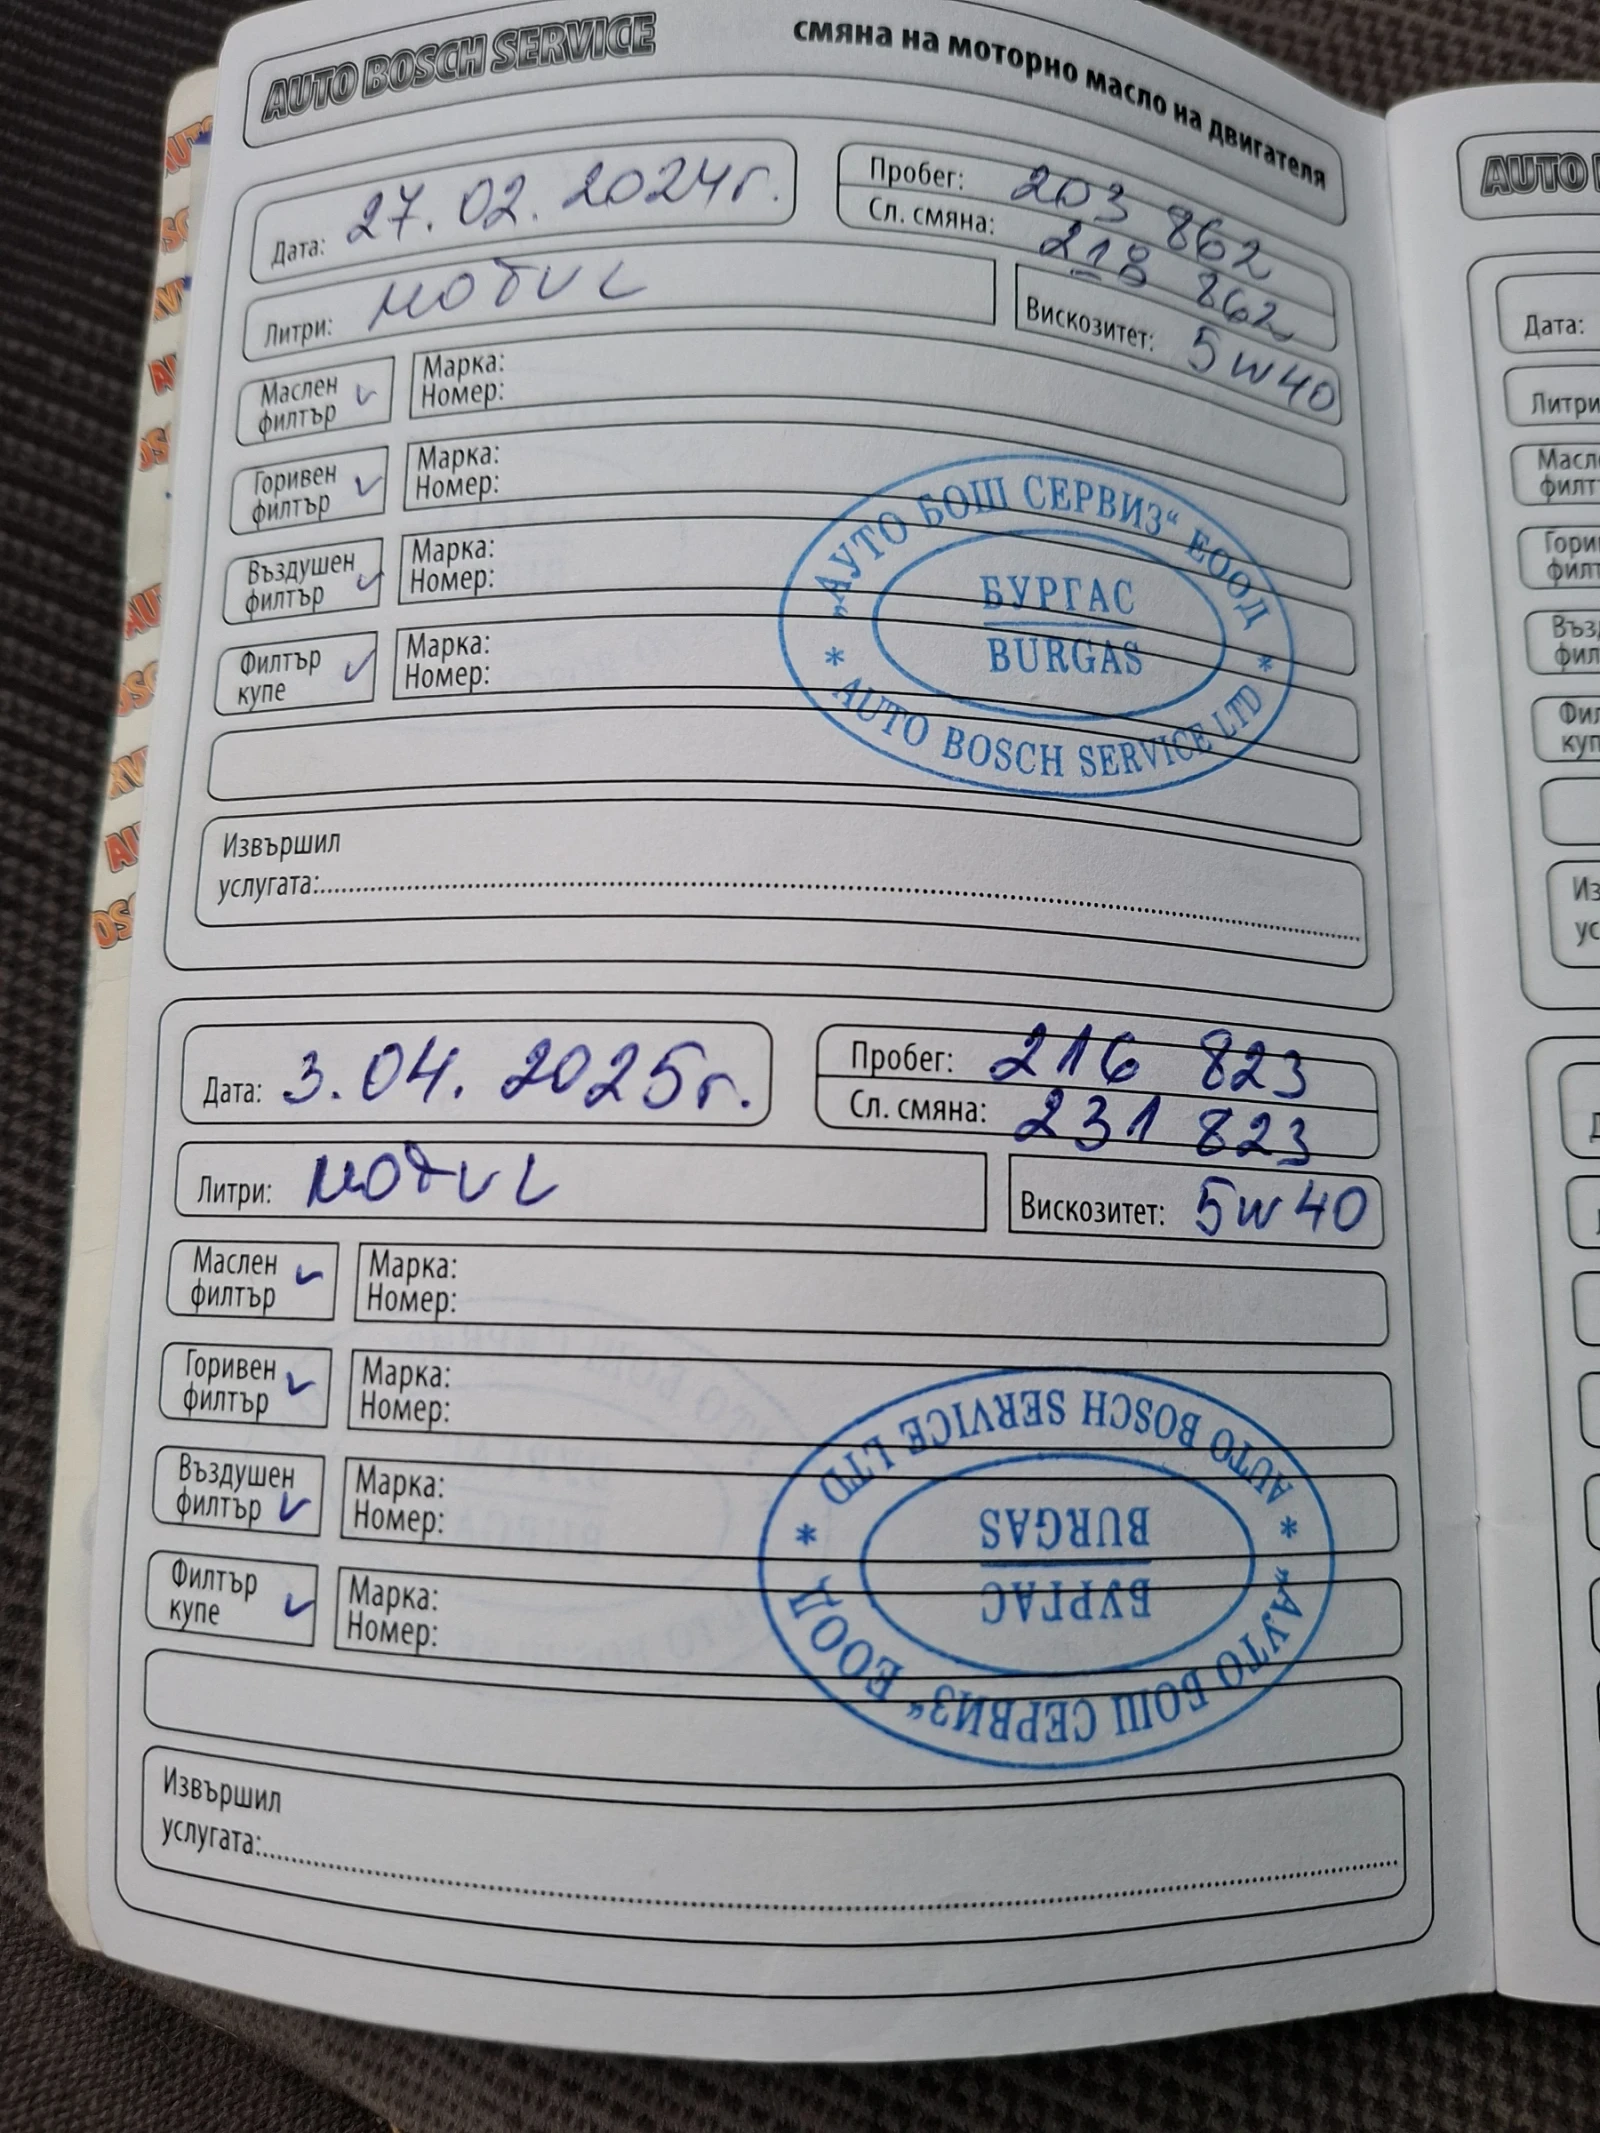 AUTO BOSCH SERVICE
смяна на моторно масло на двигателя
Дата: 27.02.2024г.
Пробег: 203 862
Сл. смяна: 218 862
Литри: мотul
Вискозитет: 5w40
Маслен филтър ✓
Марка:
Номер:
Горивен филтър ✓
Марка:
Номер:
Въздушен филтър ✓
Марка:
Номер:
Филтър купе ✓
Марка:
Номер:
„АУТО БОШ СЕРВИЗ“ ЕООД
БУРГАС
BURGAS
* AUTO BOSCH SERVICE LTD *
Извършил
услугата:
Дата: 3.04.2025г.
Пробег: 216 823
Сл. смяна: 231 823
Литри: мотul
Вискозитет: 5w40
Маслен филтър ✓
Марка:
Номер:
Горивен филтър ✓
Марка:
Номер:
Въздушен филтър ✓
Марка:
Номер:
Филтър купе ✓
Марка:
Номер:
„АУТО БОШ СЕРВИЗ“ ЕООД
БУРГАС
BURGAS
* AUTO BOSCH SERVICE LTD *
Извършил
услугата:
AUTO
Дата:
Литри